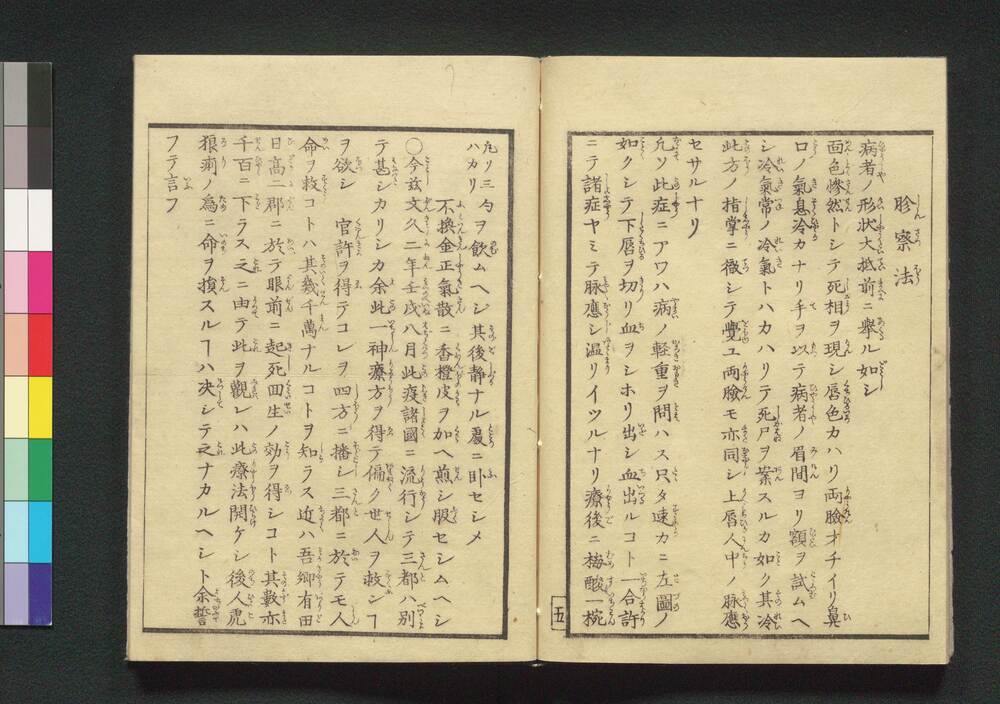 胗察法
病者ノ形状大抵前ニ舉ル如シ
面色惨然トシテ死相ヲ現シ唇色カハリ両臉オチイリ鼻
口ノ氣息冷カナリ手ヲ以テ病者ノ眉間ヨリ額ヲ試ムヘ
シ冷氣常ノ冷氣トハカハリテ死尸ヲ案スルカ如ク其冷
此方ノ指掌ニ徹シテ覺ユ両臉モ亦同シ上唇人中ノ脉應
セサルナリ
凢ソ此症ニアワハ病ノ軽重ヲ問ハス只タ速カニ左圖ノ
如クシテ下唇ヲ切リ血ヲシホリ出シ血出ルコト一合許
ニテ諸症ヤミテ脉應シ温リイツルナリ療後ニ梅酸一椀
五
凢リ三勺ヲ飲ムヘシ其後静ナル處ニ卧セシメ
ハカリ
不換金正氣散ニ香橙皮ヲ加ヘ煎シ服セシムヘシ
○今玆文久二年壬戌八月此疫諸國ニ流行シテ三都ハ別
テ甚シカリシカ余此一神療方ヲ得テ偏ク世人ヲ救ンヿ
ヲ欲シ 官許ヲ得テコレヲ四方ニ播シ三都ニ於テモ人
命ヲ救コトハ其幾千萬ナルコトヲ知ラス近ハ吾郷有田
日高二郡ニ於テ眼前ニ起死回生ノ効ヲ得シコト其數亦
千百ニ下ラス之ニ由テ此ヲ觀レハ此療法開ケシ後人虎
狼痢ノ為ニ命ヲ損スルヿハ决シテ之ナカルヘシト余誓
フテ言フ